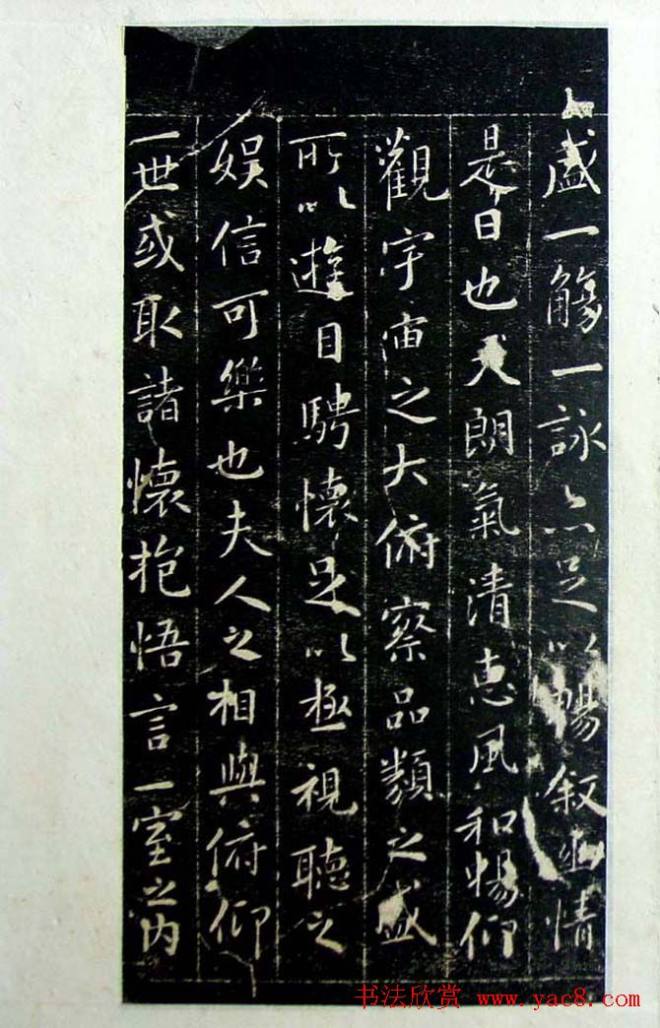 盛一觴一詠亦足以暢叙幽情
是日也天朗氣清惠風和暢仰
觀宇宙之大俯察品類之盛
所以遊目騁懷足以極視聽之
娛信可樂也夫人之相與俯仰
一世或取諸懷抱悟言一室之內
书法欣赏 www.yac8.com